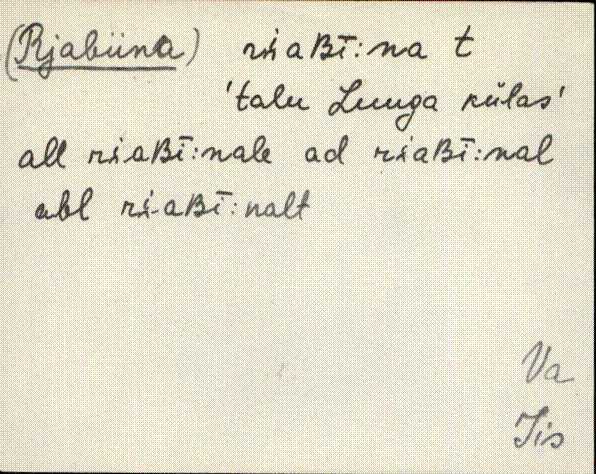 (Rjabiina) riaBī:na t
'talu Luuga külas'
all riaBī:nale ad riaBī:nal
abl riaBī:nalt
Va
Iis